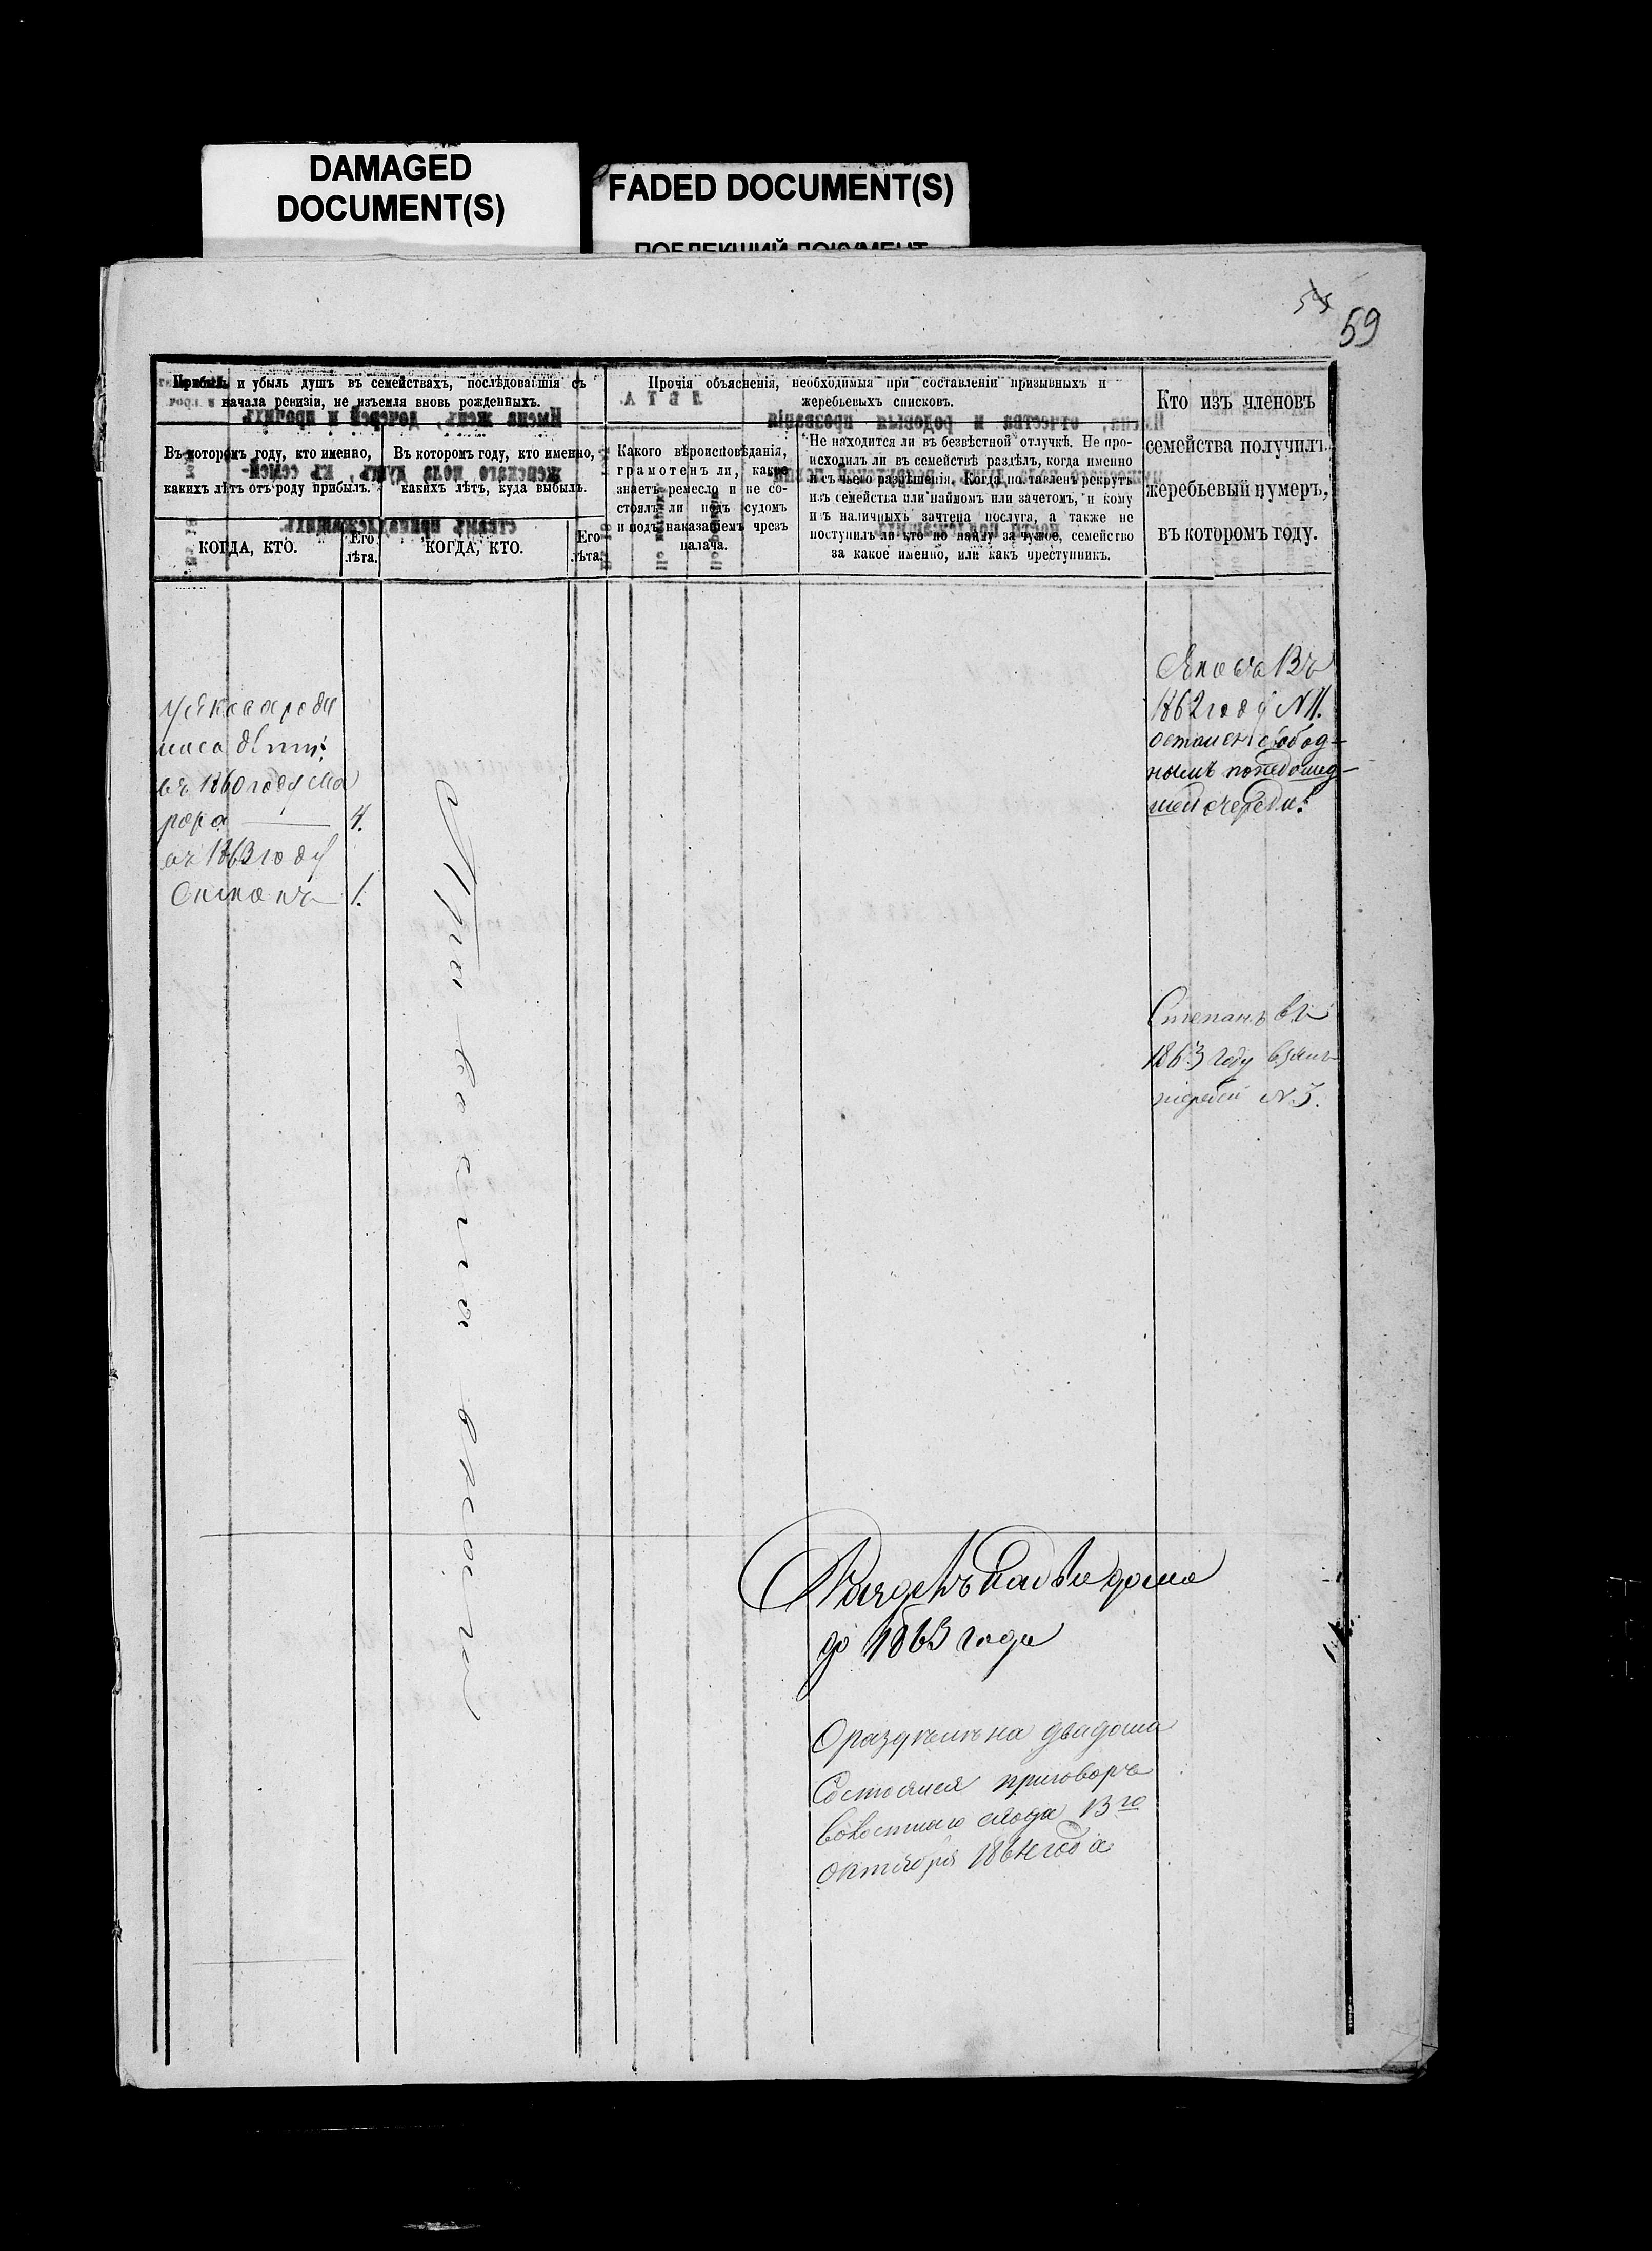 DAMAGED
DOCUMENT(S)
FADED DOCUMENT(S)
ПОБЛЕКШИЙ ДОКУМЕНТ
59
Прибыль и убыль душъ въ семействахъ, послѣдовавшія съ
начала ревизіи, не изъемля вновь рожденныхъ.
Въ которомъ году, кто именно,
какихъ лѣтъ отъ роду прибылъ.
Въ которомъ году, кто именно,
какихъ лѣтъ, куда выбылъ.
КОГДА, КТО.
Его
лѣта.
КОГДА, КТО.
Его
лѣта.
Прочія объясненія, необходимыя при составленіи призывныхъ и
жеребьевыхъ списковъ.
Какого вѣроисповѣданія,
грамотенъ ли, какое
знаетъ ремесло и не со-
стоялъ ли подъ судомъ
и подъ наказаніемъ чрезъ
палача.
Не находится ли въ безвѣстной отлучкѣ. Не про-
исходилъ ли въ семействѣ раздѣлъ, когда именно
и съ чьего разрѣшенія. Когда поставленъ рекрутъ
изъ семейства или наймомъ или зачетомъ, и кому
изъ наличныхъ зачтена послуга, а также не
поступилъ ли кто по найму за чужое семейство
за какое именно, или какъ преступникъ.
Кто изъ членовъ
семейства получилъ
жеребьевый нумеръ,
въ которомъ году.
У Якова роди
лиса дѣти:
въ 1860 году Ма
4.
въ 1863 году
1.
Яковъ Въ
1862 году N 11.
остался свобод-
нымъ понедошед-
шей очереди.
Степанъ въ
1863 году взялъ
жребій N.
Раздѣлъ на два дома
до 1863 года
О раздѣлѣ на два дома
Состоялся приговоръ
Волостнаго схода 13го
Октября 1864 года